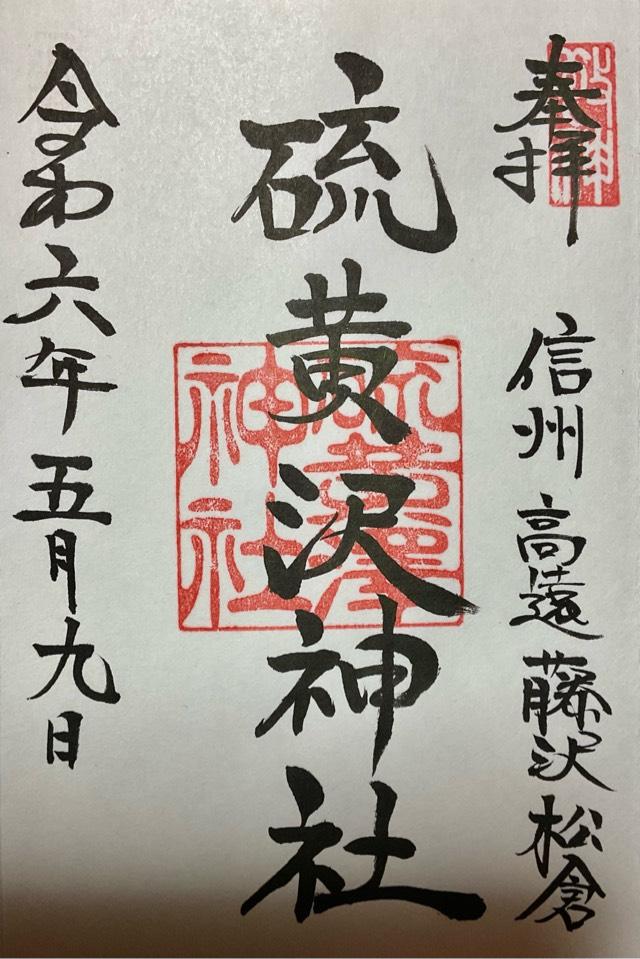 奉拝
信州 高遠 藤沢 松倉
硫黄沢神社
硫黄澤神社
令和六年五月九日